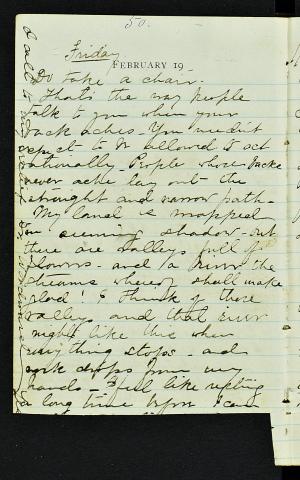 50.
Friday
FEBRUARY 19
Do take a chair.
That's the way people
talk to you when your
back aches. You needn't
expect to be allowed to act
rationally. People whose backs
never ache lay out the
straight and narrow path.
My land is wrapped
in evening shadow - but
there are valleys full of
flowers - and a River the
streams whereof shall make
glad! I think of those
valleys and that river
nights like this when
anything stops - and
work drops from my
hands - I feel like resting
a long time before I can